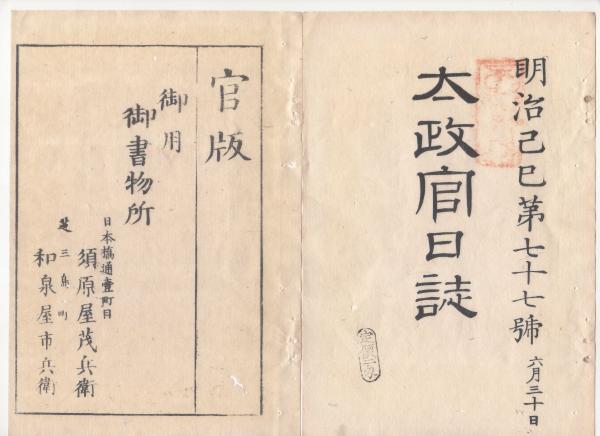 明治己巳第七十七號 六月三十日
太政官日誌
官版
御用
御書物所
日本橋通壹町目
須原屋茂兵衛
芝三島町
和泉屋市兵衛